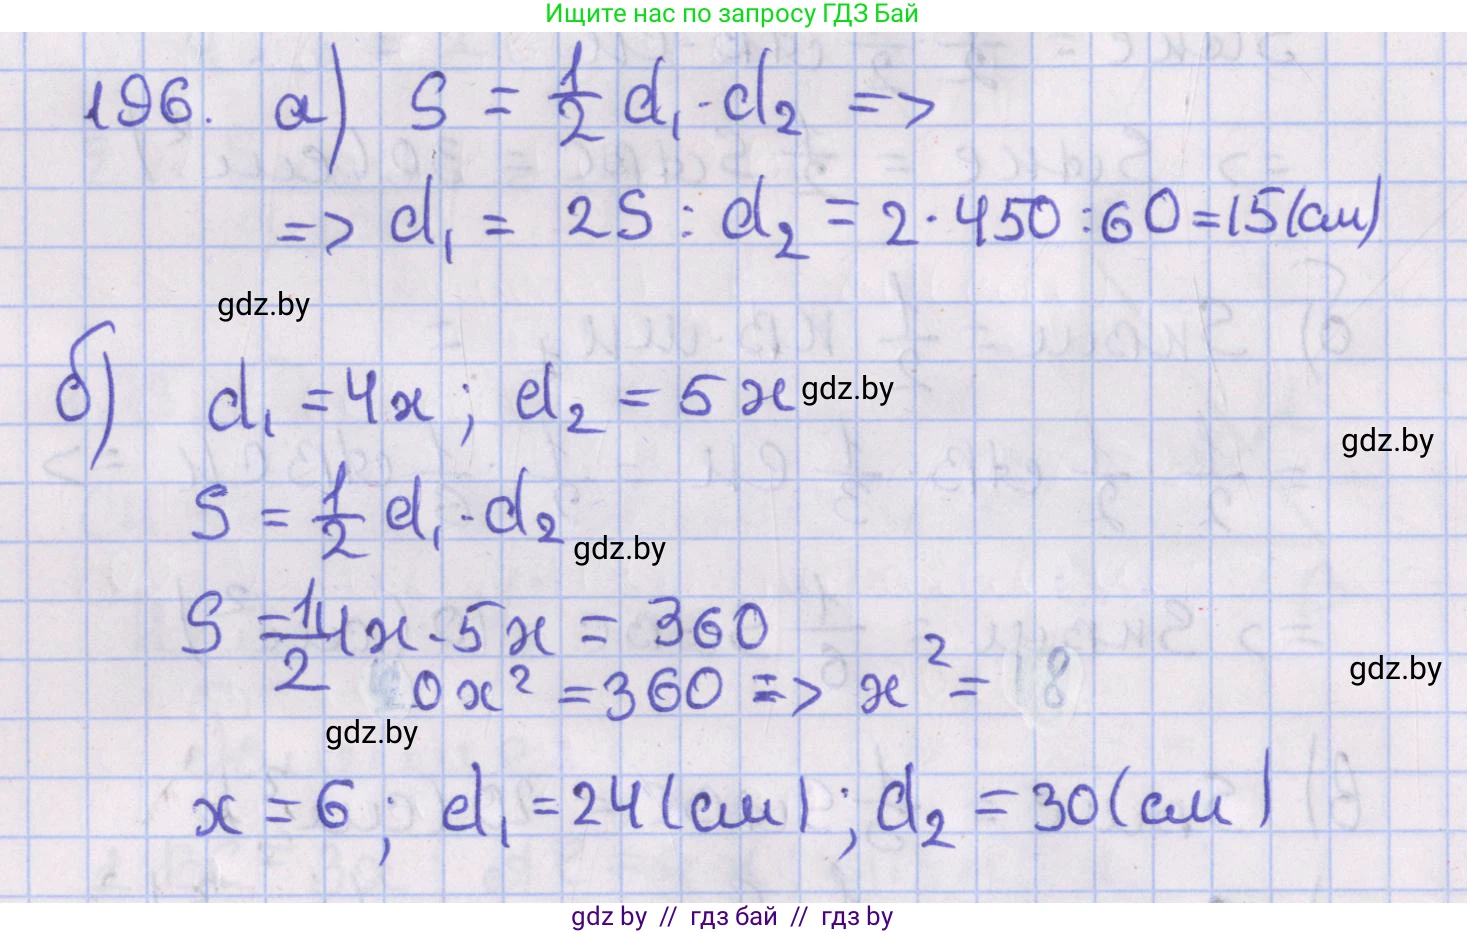 Ищите нас по запросу ГДЗ Бай
196. а) S = 1/2 d₁ · d₂ =>
=> d₁ = 2S : d₂ = 2 · 450 : 60 = 15 (см)
gdz.by
б) d₁ = 4x ; d₂ = 5x
gdz.by
gdz.by
S = 1/2 d₁ · d₂
gdz.by
S = 1/2 4x · 5x = 360
0x² = 360 => x² =
gdz.by
gdz.by
x = 6 ; d₁ = 24 (см) ; d₂ = 30 (см)
gdz by // гдз бай // гдз by